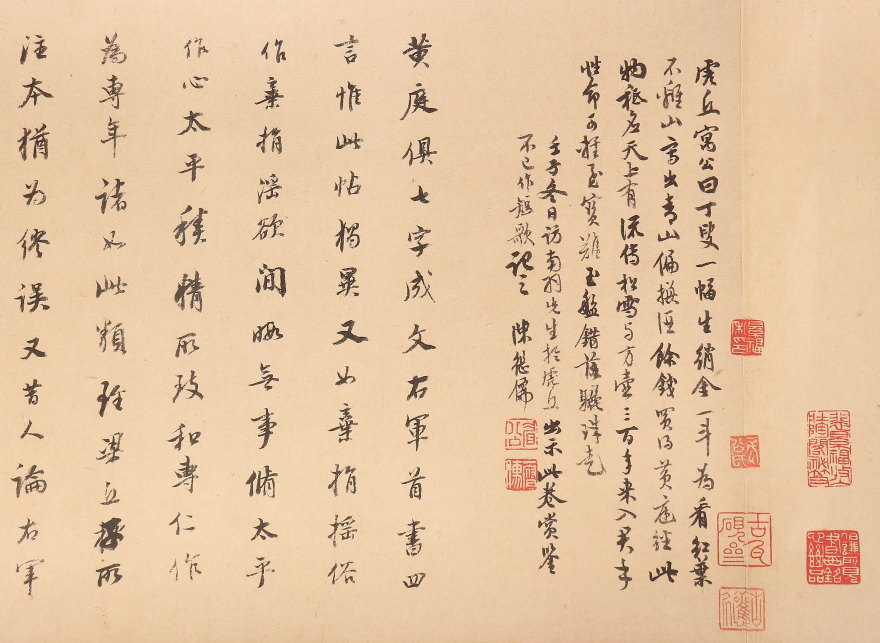 虎丘寓公曰丁叟一幅生綃金一斗為看紅葉
不離山高出青山偏換酒餘錢買得黃庭經此
物秖應天上有流傳松雪与方壺三百年來入君手
性命可輕至寶難玉盤錯落驪珠走
壬子冬日訪南羽先生於虎丘出示此卷賞鑒
不已作短歌記之 陳繼儒
黃庭俱七字成文右軍首書四
言惟此帖獨異又如棄捐搖俗
作棄捐淫欲閒暇無事脩太平
作心太平積精所致和專仁作
為專年諸如此類梁丘所
注本猶為繆誤又昔人論右軍